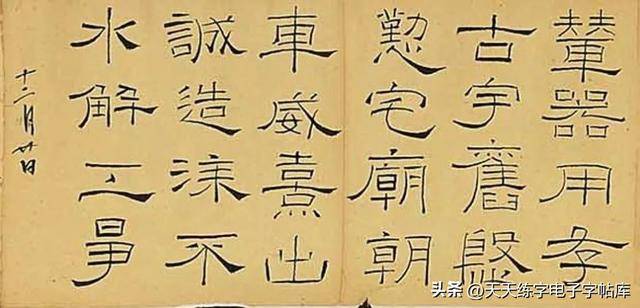 輦器用存
古宇舊殷
懃宅廟朝
車威熹出
誠造漆不
水解工爭
十二月廿日
头条 @天天练字电子字帖库